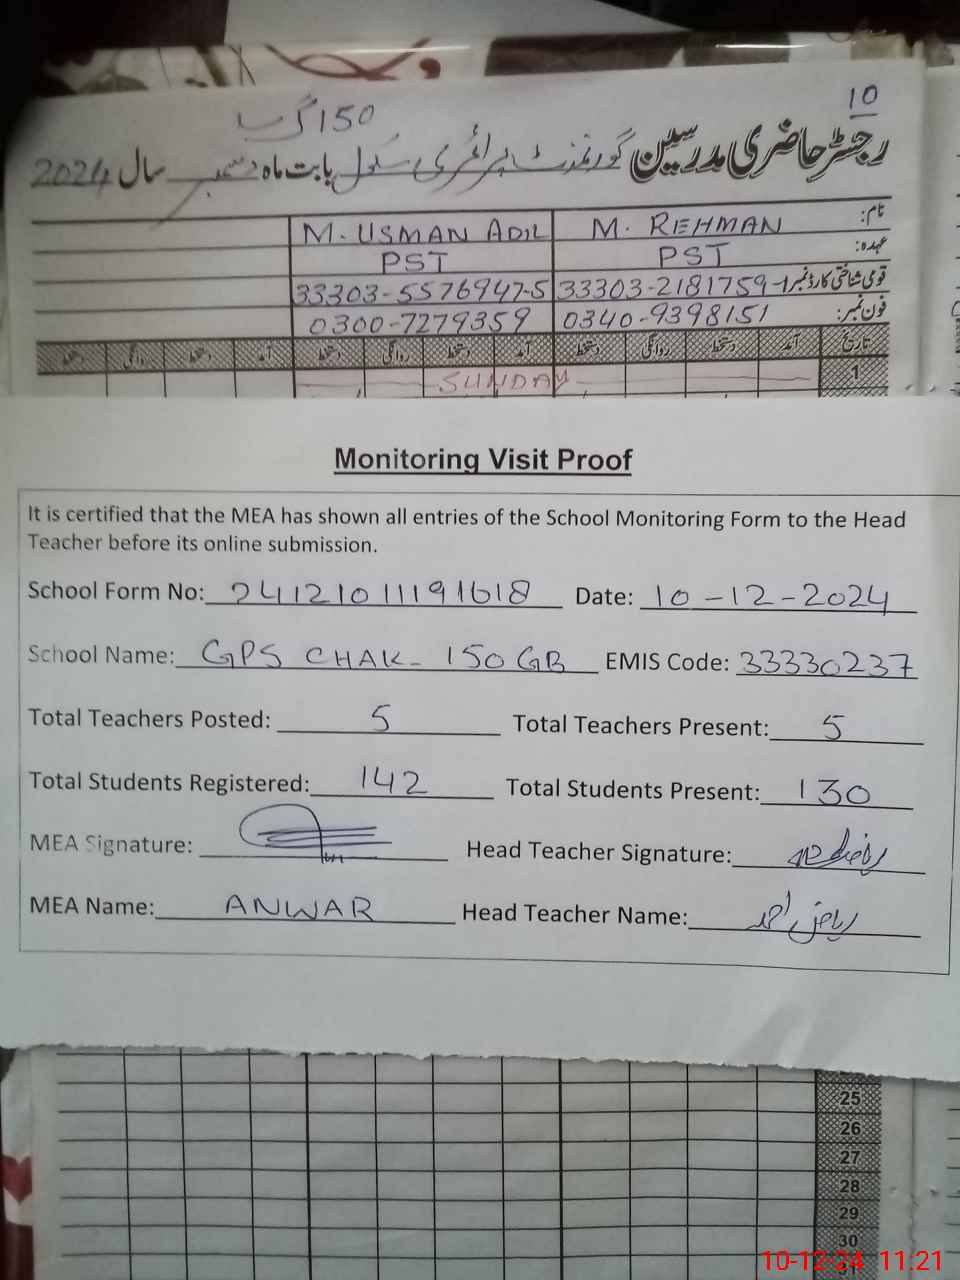 10
150 گ ب
رجسٹر حاضری مدرسین گورنمنٹ پرائمری سکول بابت ماہ دسمبر سال 2024
نام: M. REHMAN M. USMAN ADIL
عہدہ: PST PST
قومی شناختی کارڈ نمبر 33303-2181759-1 33303-5576947-5
فون نمبر: 0340-9398151 0300-7279359
تاریخ آمد دستخط روانگی دستخط آمد دستخط روانگی دستخط آمد دستخط روانگی دستخط
1 SUNDAY
Monitoring Visit Proof
It is certified that the MEA has shown all entries of the School Monitoring Form to the Head
Teacher before its online submission.
School Form No: 24121011191618 Date: 10-12-2024
School Name: GPS CHAK- 150 GB EMIS Code: 33330237
Total Teachers Posted: 5 Total Teachers Present: 5
Total Students Registered: 142 Total Students Present: 130
MEA Signature: Head Teacher Signature:
MEA Name: ANWAR Head Teacher Name: ریاض احمد
25
26
27
28
29
30
31
10-12-24 11:21